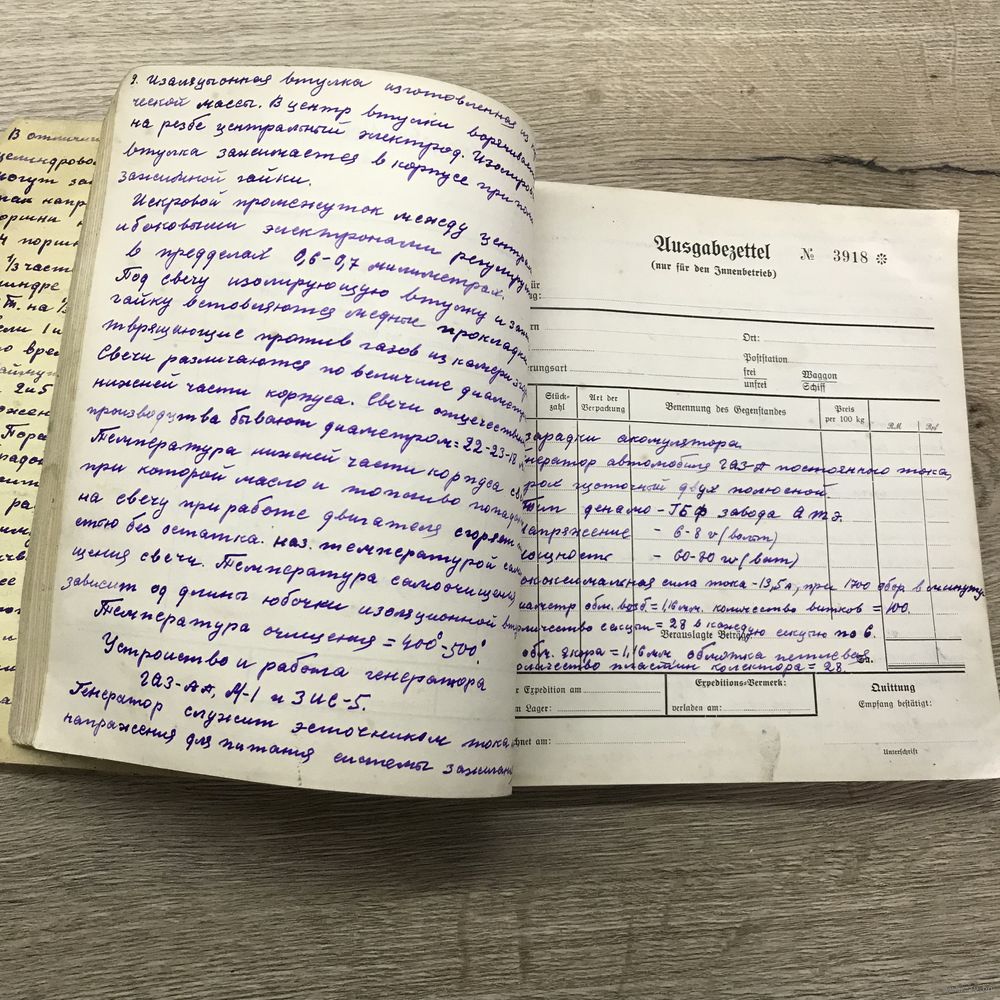 В отличии
цилиндрово
могут за
1/3 част
2 и 5
9. Изаляционная втулка изготовленная из
ческой массы. В центр втулки
на резбе центральный электрод. Изолиров
втулка зажимается в корпусе при пом
зажимной гайки.
Искровой промежуток между централ
и боковыми электронами регулиру
в предделах 0,6-0,7 милиметрах.
Под свечу изолирующую втулку и заж
гайку вставляются медные прокладки
твращающие против газов из камеры
Свечи различаются по величине диаметр
нижней части корпуса. Свечи отечествен
производства бывают диаметром = 22-23-18 м
Температура нижней части корпуса св
при которой масло и топливо попадая
на свечу при работе двигателя сгорает
стью без остатка. наз. температурой само
щения свечи. Температура самоочищения
зависит од длины юбочки изоляционной вт
Температура очищения = 400°-500°.
Устроиство и работа генератора
ГАЗ-АА, М-1 и ЗИС-5.
Генератор служит эсточником тока
напряжения для питания системы зажигани
Ausgabezettel № 3918 ✻
(nur für den Innenbetrieb)
ür
g:
rn
Ort:
Poststation
erungsart
frei Waggon
unfrei Schiff
Stück-zahl Art der Verpackung Benennung des Gegenstandes Preis per 100 kg RM Rpf
зарадки акомулятора
нератор автомобиля ГАЗ-А постоянного тока,
рех щоточный двух полюсной.
Тип динамо - ГБФ завода АТЭ.
апряжение - 6-8 v (вольт)
ощность - 60-80 w (ват)
аксимальная сила тока - 13,5 а, при 1700 обор в минуту
иаметр обм. возб. = 1,16 мм. количество витков = 100.
личество секцый = 28 в каждую секцыю по 6.
Verauslagte Beträge
обм. якора = 1,16 мм. обмотка петлевая
оличество пластин колектора = 28.
r Expedition am
Expeditions-Vermerk:
Quittung
Empfang bestätigt:
m Lager:
verladen am:
chnet am:
Unterschrift